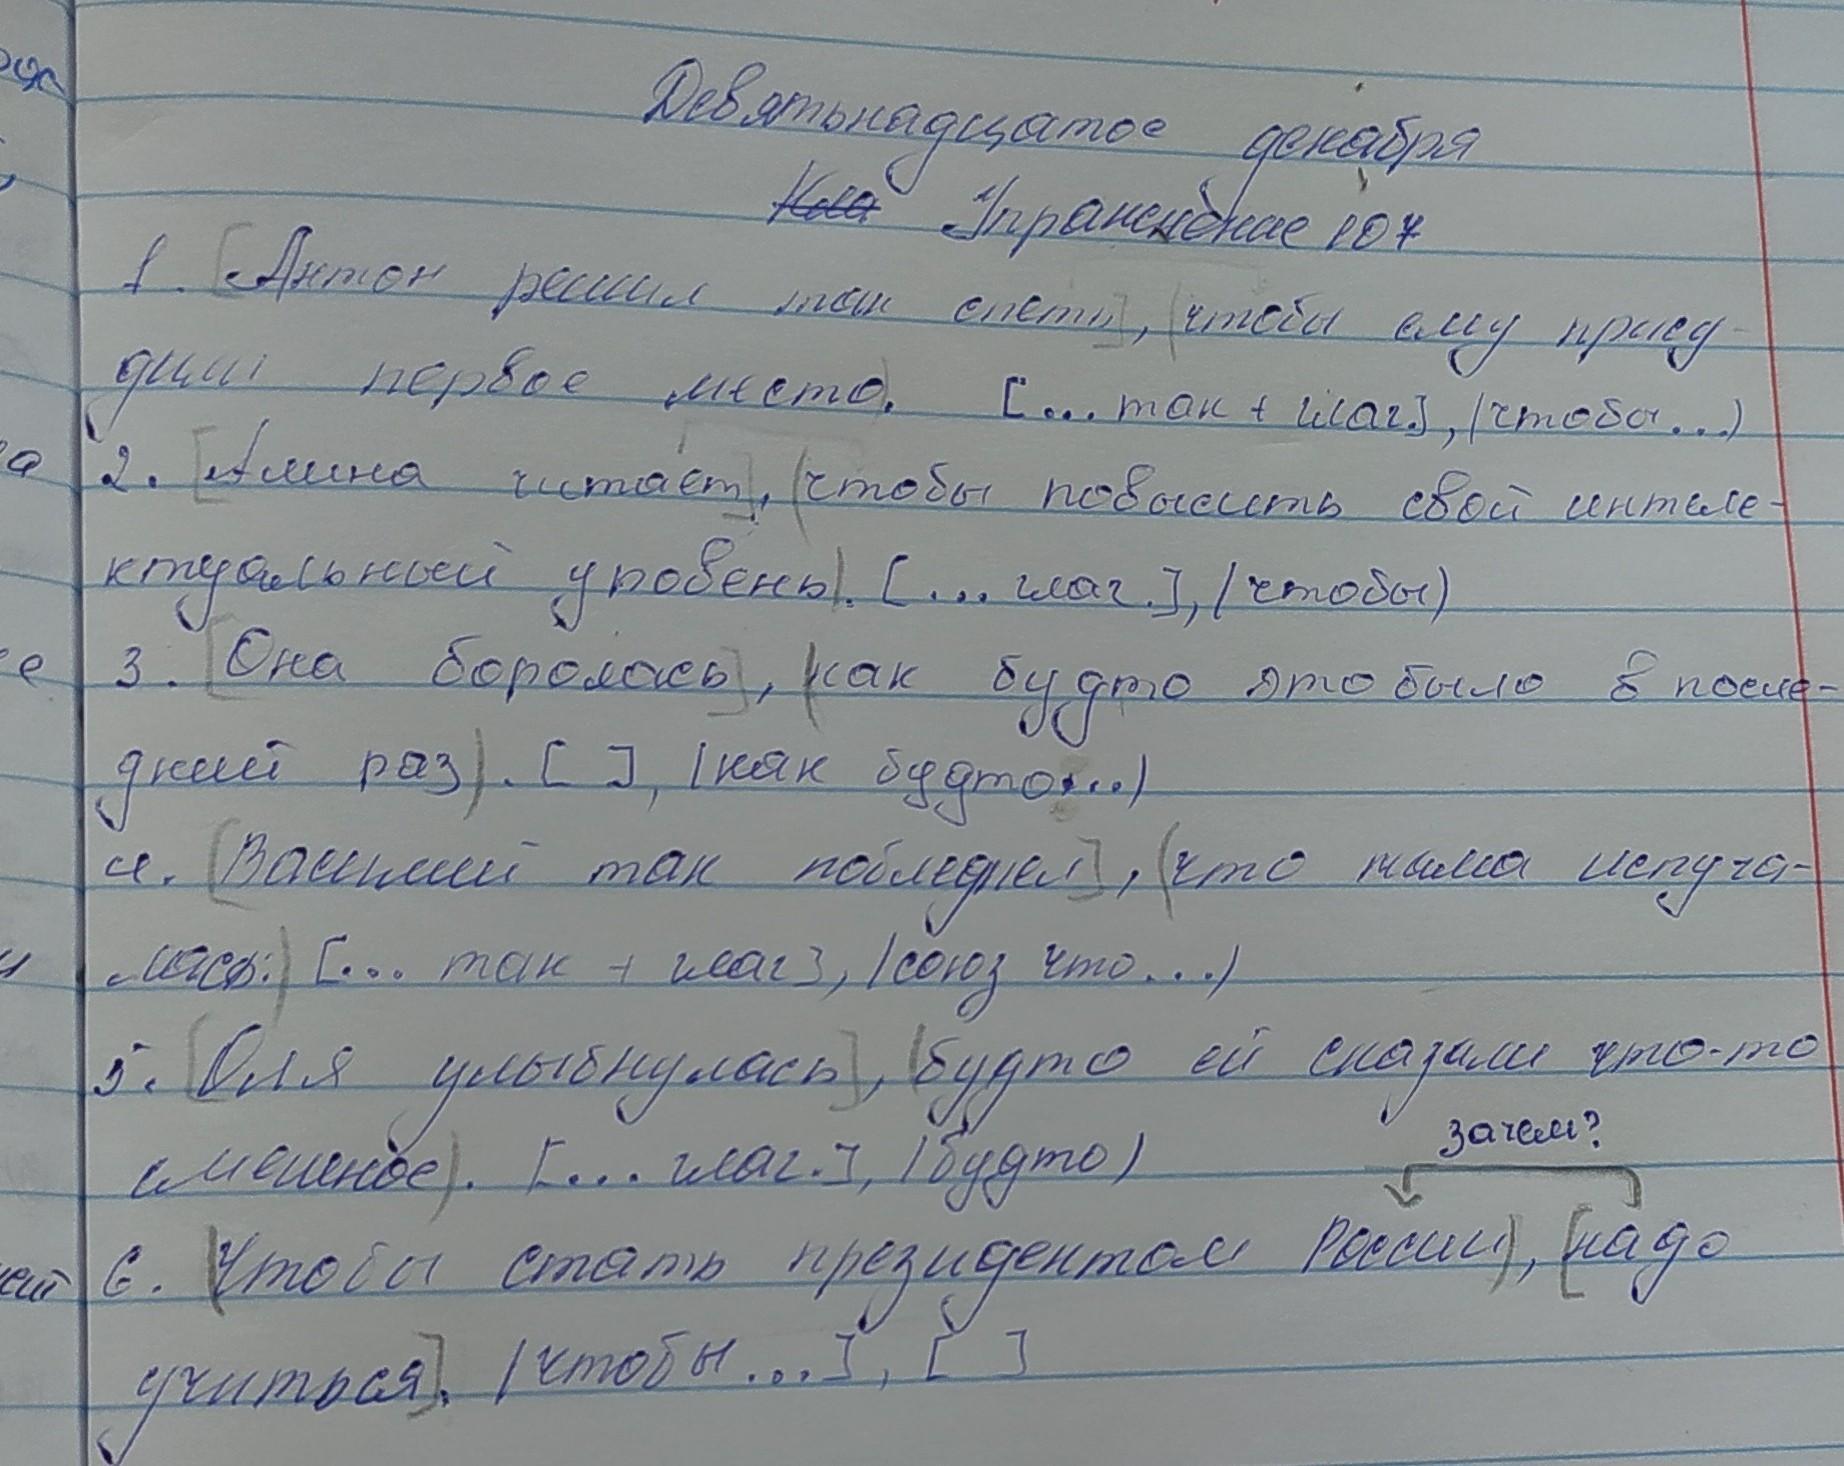 Девятьнадцатое декабря
Упражнение 107
1. [Антон решил так спеть], (чтобы ему прису-
дили первое место). [... так + глаг.], (чтобы...)
2. [Алина читает], (чтобы повысить свой интеле-
ктуальный уровень). [... глаг.], (чтобы)
3. [Она боролась], (как будто это было в после-
дний раз). [ ], (как будто...)
4. [Василий так побледнел], (что мама испуга-
лась.) [... так + глаг], (союз что...)
5. [Оля улыбнулась], (будто ей сказали что-то
смешное). [... глаг.], (будто)
зачем?
6. (Чтобы стать президентом России), [надо
учиться]. (чтобы...], [ ]